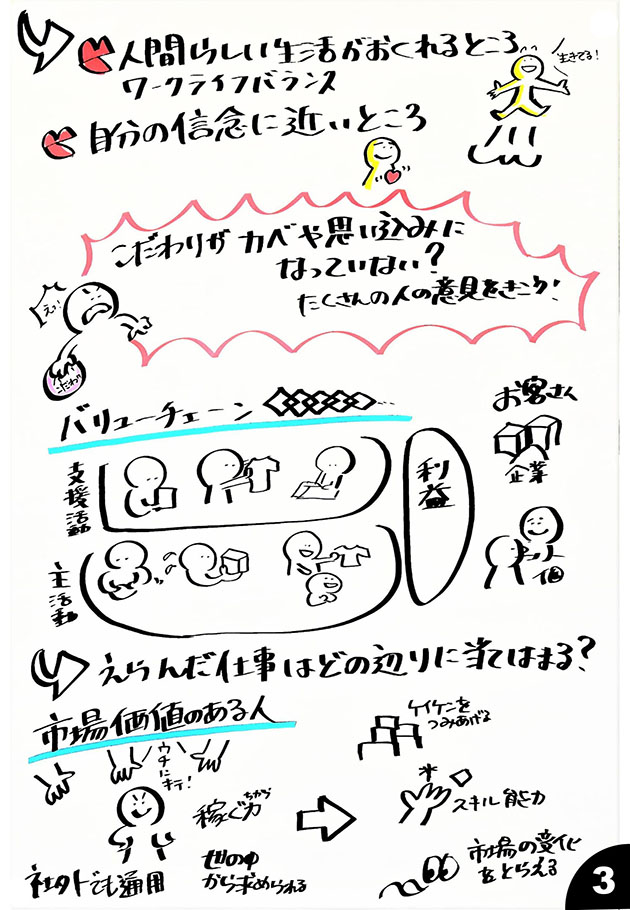 人間らしい生活がおくれるところ
ワークライフバランス
生きてる!
自分の信念に近いところ
こだわりが カベや思い込みに
なっていない?
たくさんの人の意見をきこう!
えっ
こだわり
バリューチェーン
お客さん
企業
個人
支援活動
利益
主活動
えらんだ仕事はどの辺りに当てはまる?
市場価値のある人
ウチにキテ!
ケイケンを
つみあげる
稼ぐ力
ちから
スキル 能力
社外でも通用
世の中
から求められる
市場の変化
をとらえる
3